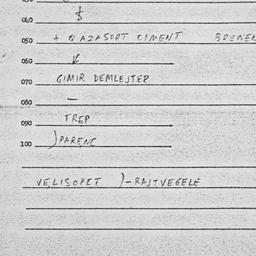 040
050 + Q AZASOPT CIMENT BREMEN
060
070 GIMIR DEMLEJTEP
080 —
090 TREP
100 )PARENC
VELISOPET )-RAJTVEGELE